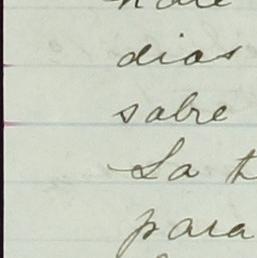 dias
sobre
La
para